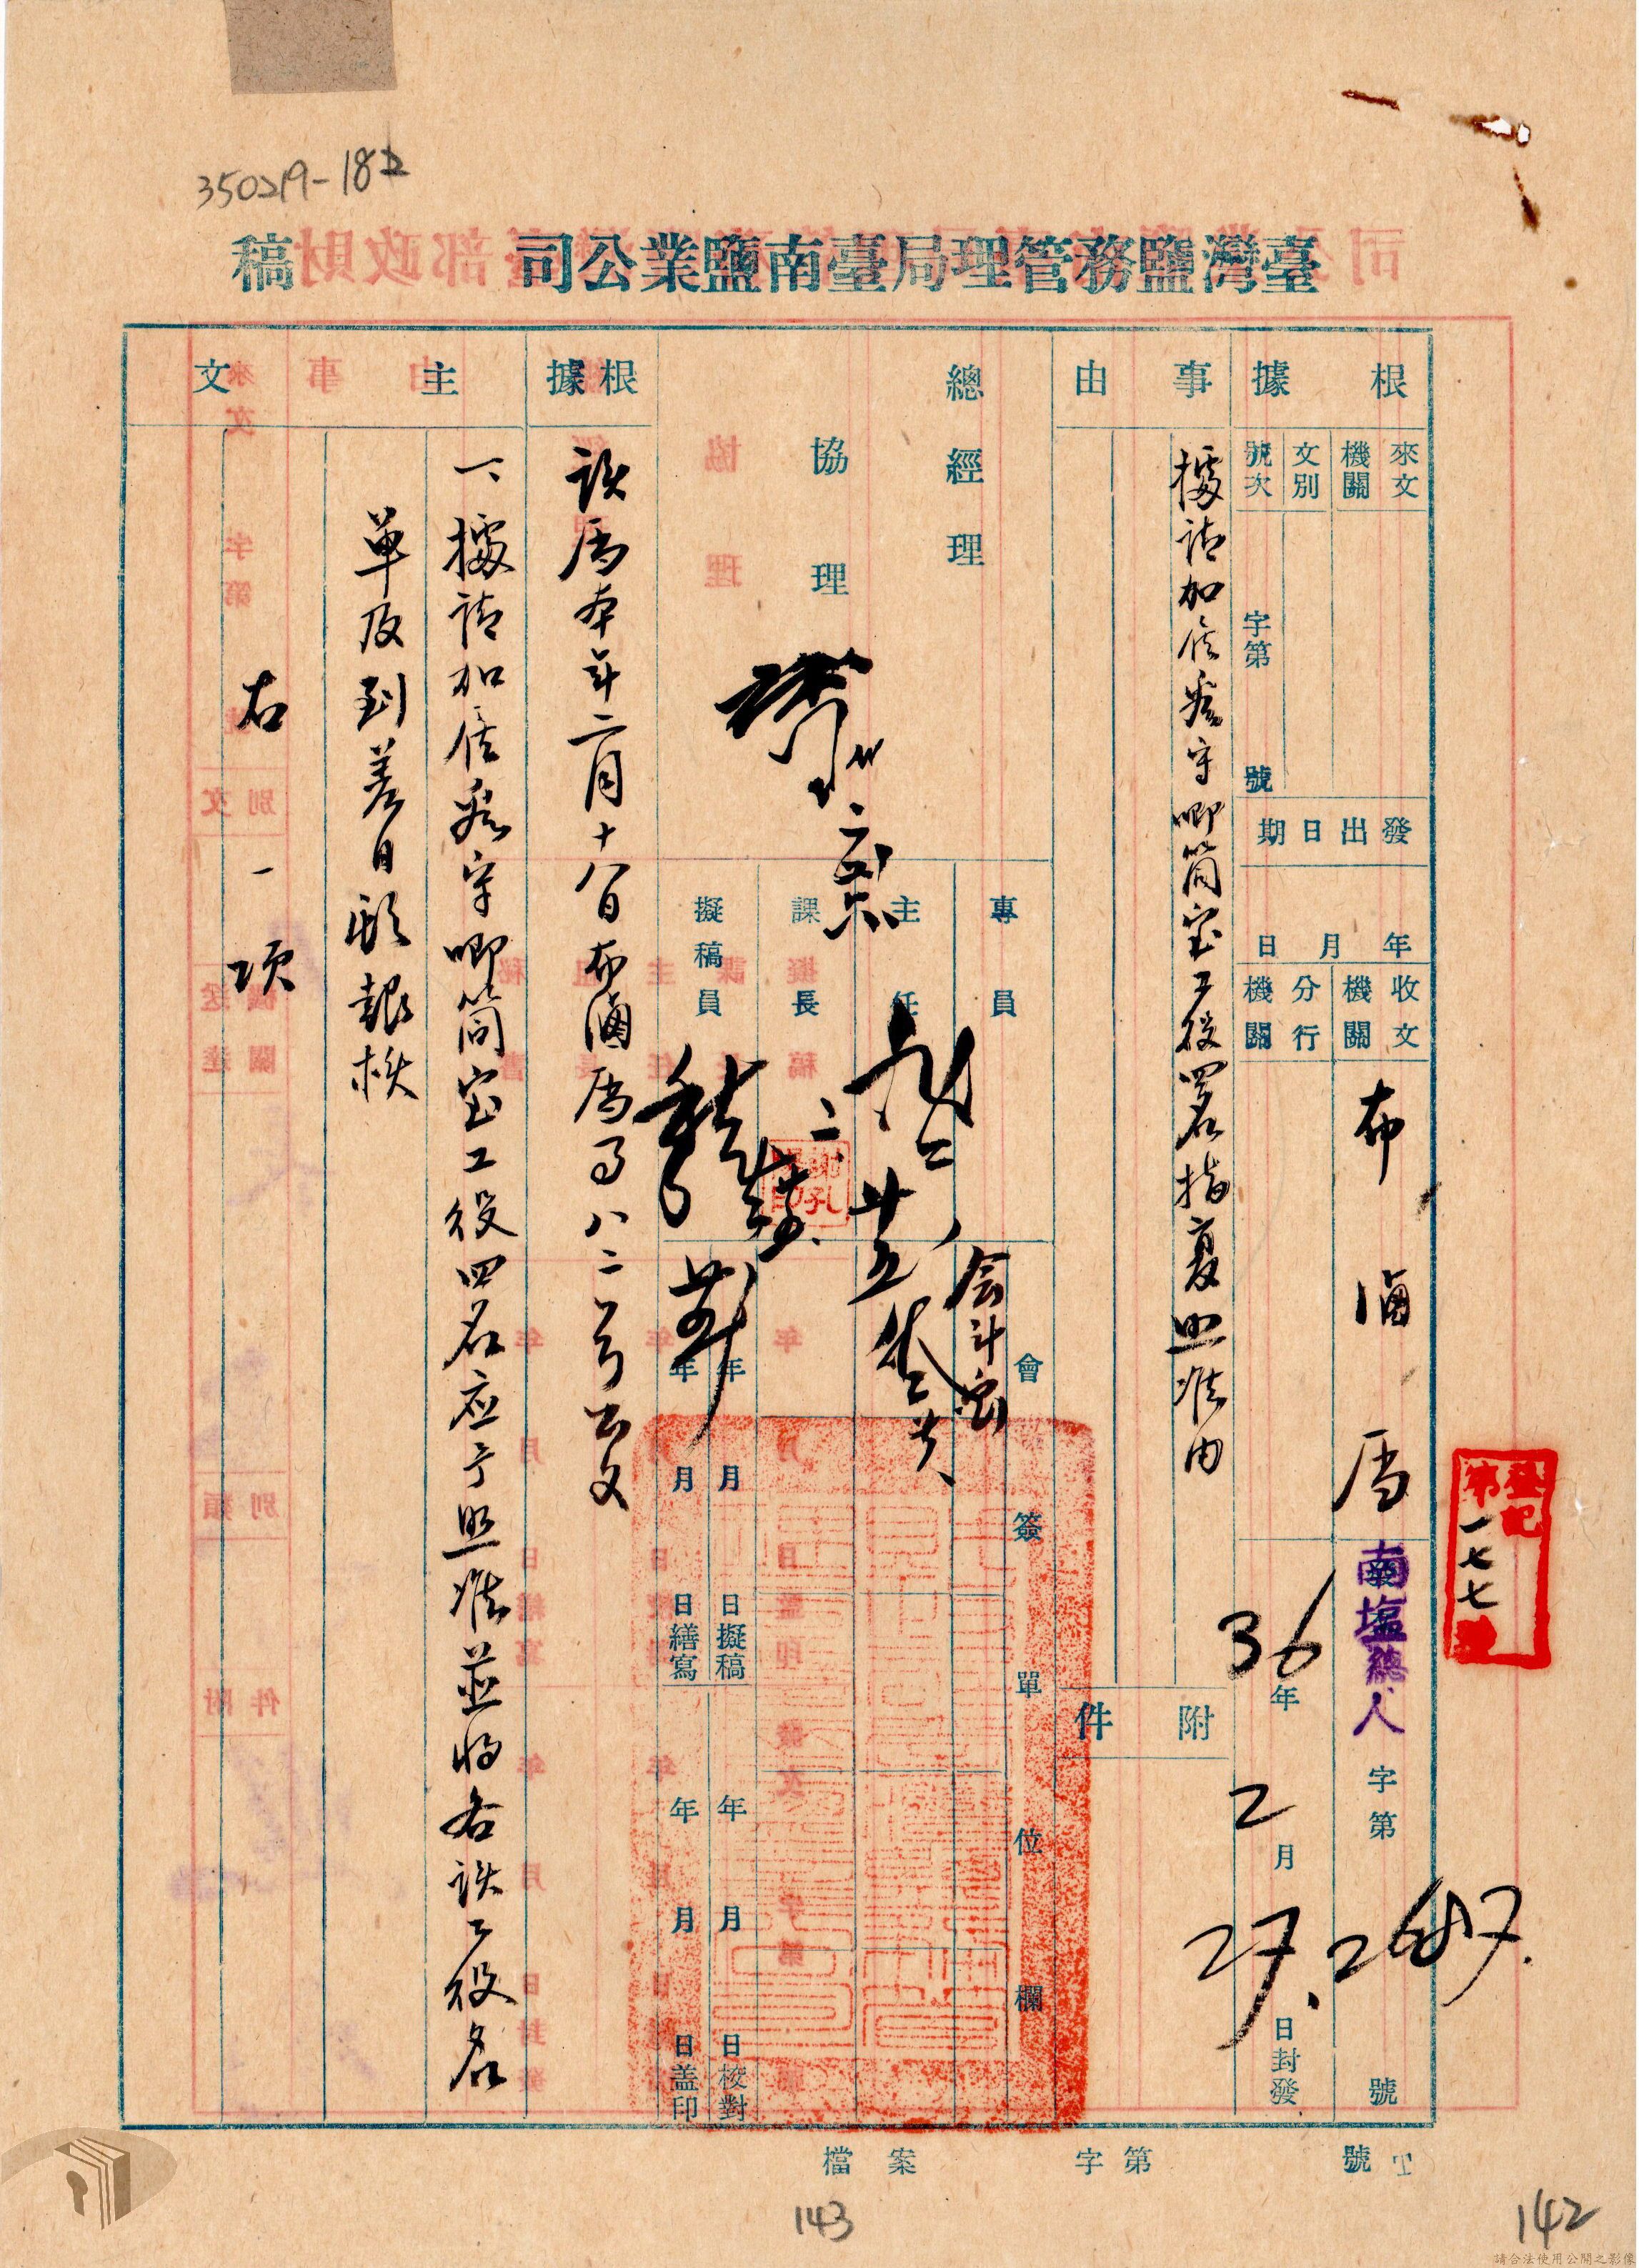 350219-182
臺灣鹽務管理局臺南鹽業公司 稿
登記
第一七七號
根據
來文機關
文別
號次
字第 號
發出日期
年 月 日
收文機關
布滷廠
分行機關
南塩總人字第2687.號
36年2月27.日封發
事由
據請加僱看守唧筒室工役四名指复照准由
附件
總經理
協理
專員
主任
課長
擬稿員
會簽單位欄
会计室
年 月 日擬稿
年 月 日繕寫
年 月 日校對
年 月 日盖印
根據
該廠本年二月十八日布滷廠字八二号公文
主文
一、據請加僱看守唧筒室工役四名应予照准並将各該工役名
單及到差日期報核
右一項
檔案 字第 號
143
142
請合法使用公開之影像